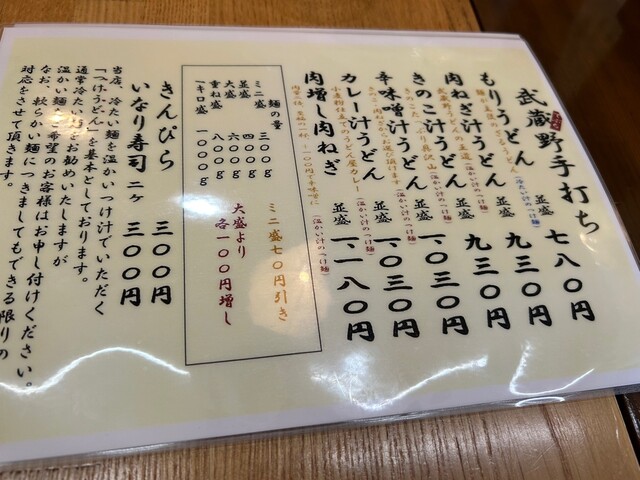 武蔵野手打ち
もりうどん 並盛 七八〇円
(冷たい汁のつけ麺)
肉ねぎ汁うどん 並盛 九三〇円
(温かい汁のつけ麺)
きのこ汁うどん 並盛 九三〇円
(温かい汁のつけ麺)
辛味噌汁うどん 並盛 一、〇三〇円
(温かい汁のつけ麺)
カレー汁うどん 並盛 一、〇三〇円
(温かい汁のつけ麺)
肉増し肉ねぎ 並盛 一、一八〇円
(温かい汁のつけ麺)
麺の量
ミニ盛 三〇〇g ミニ盛七〇円引き
並盛 四〇〇g
大盛 六〇〇g 大盛より
重ね盛 八〇〇g 各一〇〇円増し
一キロ盛 一〇〇〇g
きんぴら 三〇〇円
いなり寿司 二ケ 三〇〇円
当店、冷たい麺を温かいつけ汁でいただく
「つけうどん」を基本としております。
通常冷たい麺をお勧めいたしますが
温かい麺をご希望のお客様はお申し付けください。
なお、軟らかい麺につきましてもできる限りの
対応をさせて頂きます。